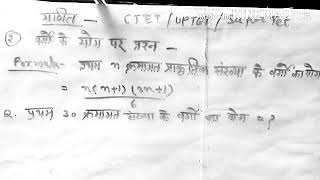 गणित — CTET / UPTET / SUPERTET
② वर्गों के योग पर प्रश्न —
Formula - प्रथम n क्रमागत प्राकृतिक संख्या के वर्गों का योग
= n(n+1)(2n+1)
6
Q. प्रथम 30 क्रमागत संख्या के वर्गों का योग = ?